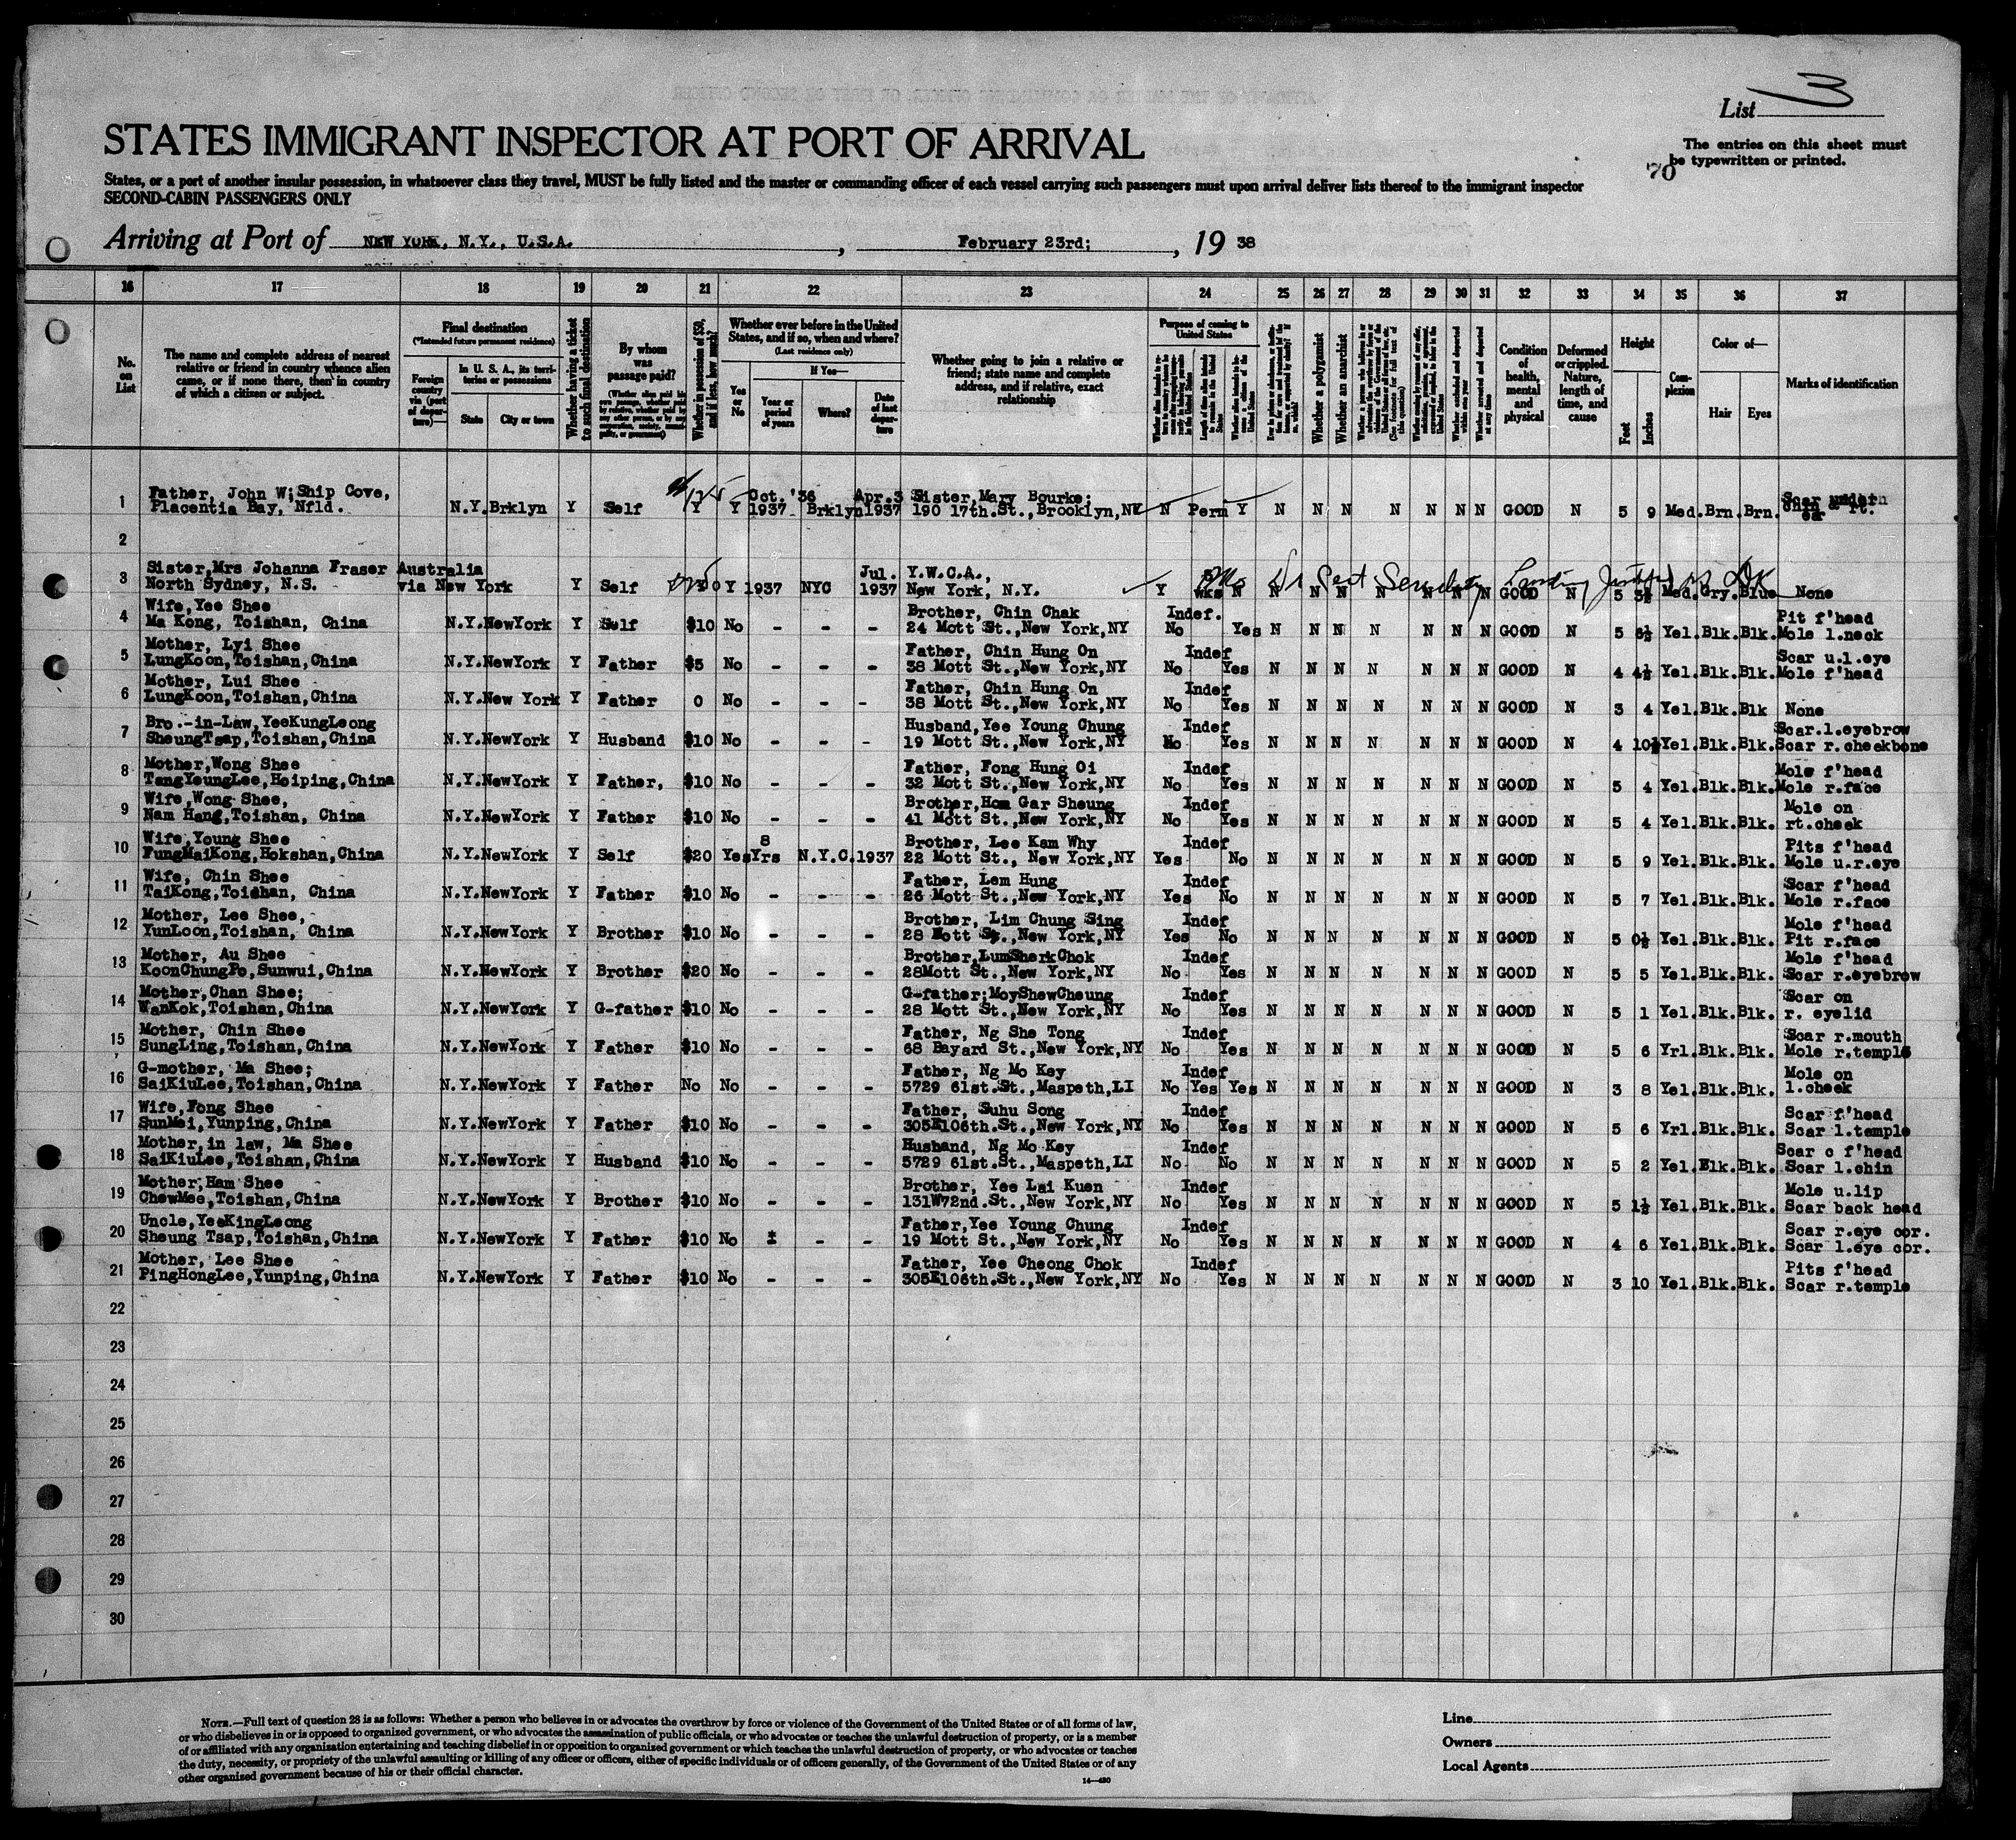 List 3
The entries on this sheet must
be typewritten or printed.
70
STATES IMMIGRANT INSPECTOR AT PORT OF ARRIVAL
States, or a port of another insular possession, in whatsoever class they travel, MUST be fully listed and the master or commanding officer of each vessel carrying such passengers must upon arrival deliver lists thereof to the immigrant inspector
SECOND-CABIN PASSENGERS ONLY
Arriving at Port of NEW YORK, N.Y., U.S.A. , February 23rd; , 19 38
16 17 18 19 20 21 22 23 24 25 26 27 28 29 30 31 32 33 34 35 36 37
No. on List
The name and complete address of nearest relative or friend in country whence alien came, or if none there, then in country of which a citizen or subject.
Final destination
(*Intended future permanent residence)
Foreign country via (port of departure)—
In U. S. A., its territories or possessions
State
City or town
Whether having a ticket to such final destination
By whom was passage paid?
Whether in possession of $50, and if less, how much?
Whether ever before in the United States, and if so, when and where?
(Last residence only)
Yes or No
If Yes—
Year or period of years
Where?
Date of last departure
Whether going to join a relative or friend; state name and complete address, and if relative, exact relationship
Purpose of coming to United States
Whether a polygamist
Whether an anarchist
Condition of health, mental and physical
Deformed or crippled. Nature, length of time, and cause
Height
Feet
Inches
Complexion
Color of—
Hair
Eyes
Marks of identification
Father, John W;Ship Cove, Oct. '36 Apr.3 Sister,Mary Bourke;
1 Placentia Bay, Nfld. N.Y. Brklyn Y Self Y 125 Y 1937 Brklyn 1937 190 17th.St.,Brooklyn,NY N Perm Y N N N N N N N GOOD N 5 9 Med. Brn. Brn. Scar under chin & rt.
2
Sister,Mrs Johanna Fraser Australia Jul. Y.W.C.A.,
3 North Sydney, N.S. via New York Y Self Y 1937 NYC 1937 New York, N.Y. Y wks N N N N N N N N GOOD N 5 Med. Gry. Blue None
Wife, Yee Shee Brother, Chin Chak Indef. Pit f'head
4 Ma Kong, Toishan, China N.Y. NewYork Y Self $10 No - - - 24 Mott St.,New York,NY No Yes N N N N N N N GOOD N 5 6½ Yel. Blk. Blk. Mole l.neck
Mother, Lyi Shee Father, Chin Hung On Indef Scar u.l.eye
5 LungKoon,Toishan,China N.Y. NewYork Y Father $5 No - - - 38 Mott St.,New York,NY No Yes N N N N N N N GOOD N 4 4½ Yel. Blk. Blk. Mole f'head
Mother, Lui Shee Father, Chin Hung On Indef
6 LungKoon,Toishan,China N.Y. New York Y Father 0 No - - - 38 Mott St.,New York,NY No Yes N N N N N N N GOOD N 3 4 Yel. Blk. Blk None
Bro.-in-Law, YeeKungLeong Husband, Yee Young Chung Indef Scar.l.eyebrow
7 SheungTsap,Toishan,China N.Y. NewYork Y Husband $10 No - - - 19 Mott St.,New York,NY No Yes N N N N N N N GOOD N 4 10½ Yel. Blk. Blk. Scar r.cheekbone
Mother,Wong Shee Father, Fong Hung Oi Indef Mole f'head
8 TangYeungLee,Hoiping,China N.Y. NewYork Y Father, $10 No - - - 32 Mott St.,New York,NY No Yes N N N N N N N GOOD N 5 4 Yel. Blk. Blk. Mole r.face
Wife, Wong Shee, Brother,Hom Gar Sheung Indef Mole on
9 Nam Hang,Toishan, China N.Y. NewYork Y Father $10 No - - - 41 Mott St.,New York,NY No Yes N N N N N N N GOOD N 5 4 Yel. Blk. Blk. rt.cheek
Wife, Young Shee 8 Brother, Lee Kam Why Indef Pits f'head
10 FungMaiKong,Hokshan,China N.Y. NewYork Y Self $20 Yes Yrs N.Y.C. 1937 22 Mott St., New York,NY Yes No N N N N N N N GOOD N 5 9 Yel. Blk. Blk. Mole u.r.eye
Wife, Chin Shee Father, Lem Hung Indef Scar f'head
11 TaiKong,Toishan, China N.Y. NewYork Y Father $10 No - - - 26 Mott St.,New York,NY Yes No N N N N N N N GOOD N 5 7 Yel. Blk. Blk. Mole r.face
Mother, Lee Shee, Brother, Lim Chung Sing Indef Mole f'head
12 YunLoon,Toishan, China N.Y. NewYork Y Brother $10 No - - - 28 Mott St.,New York,NY Yes No N N N N N N N GOOD N 5 0½ Yel. Blk. Blk. Pit r.face
Mother, Au Shee Brother,LumSherkChok Indef Mole f'head
13 KoonChungPo,Sunwui,China N.Y. NewYork Y Brother $20 No - - - 28Mott St.,New York,NY No Yes N N N N N N N GOOD N 5 5 Yel. Blk. Blk. Scar r.eyebrow
Mother,Chan Shee; G-father;MoyShewCheung Indef Scar on
14 WanKok,Toishan,China N.Y. NewYork Y G-father $10 No - - - 28 Mott St.,New York,NY No Yes N N N N N N N GOOD N 5 1 Yel. Blk. Blk. r. eyelid
Mother, Chin Shee Father, Ng She Tong Indef Scar r.mouth
15 SungLing,Toishan,China N.Y. NewYork Y Father $10 No - - - 68 Bayard St.,New York,NY No Yes N N N N N N N GOOD N 5 6 Yrl. Blk. Blk. Mole r.temple
G-mother, Ma Shee; Father, Ng Mo Key Indef Mole on
16 SaiKiuLee,Toishan,China N.Y. NewYork Y Father No No - - - 5729 61st.St.,Maspeth,LI No Yes Yes N N N N N N N GOOD N 3 8 Yel. Blk. Blk. l.cheek
Wife,Fong Shee Father, Suhu Song Indef Scar f'head
17 SunMei,Yunping,China N.Y. NewYork Y Father $10 No - - - 305E106th.St.,New York,NY No Yes N N N N N N N GOOD N 5 6 Yrl. Blk. Blk. Scar l.temple
Mother,in law, Ma Shee Husband, Ng Mo Key Indef Scar c f'head
18 SaiKiuLee,Toishan,China N.Y. NewYork Y Husband $10 No - - - 5729 61st.St.,Maspeth,LI No No N N N N N N N GOOD N 5 2 Yel. Blk. Blk. Scar l.chin
Mother,Ham Shee Brother, Yee Lai Kuen Indef Mole u.lip
19 ChewMee,Toishan,China N.Y. NewYork Y Brother $10 No - - - 131W72nd.St.,New York,NY No Yes N N N N N N N GOOD N 5 1½ Yel. Blk. Blk. Scar back head
Uncle,YeeKingLeong Father,Yee Young Chung Indef Scar r.eye cor.
20 Sheung Tsap,Toishan,China N.Y. NewYork Y Father $10 No - - 19 Mott St.,New York,NY No Yes N N N N N N N GOOD N 4 6 Yel. Blk. Blk. Scar l.eye cor.
Mother, Lee Shee Father, Yee Cheong Chok Indef Pits f'head
21 PingHongLee,Yunping,China N.Y. NewYork Y Father $10 No - - - 305E106th.St.,New York,NY No Yes N N N N N N N GOOD N 3 10 Yel. Blk. Blk. Scar r.temple
22
23
24
25
26
27
28
29
30
NOTE.—Full text of question 28 is as follows: Whether a person who believes in or advocates the overthrow by force or violence of the Government of the United States or of all forms of law,
or who disbelieves in or is opposed to organized government, or who advocates the assassination of public officials, or who advocates or teaches the unlawful destruction of property, or is a member
of or affiliated with any organization entertaining and teaching disbelief in or opposition to organized government or which teaches the unlawful destruction of property, or who advocates or teaches
the duty, necessity, or propriety of the unlawful assaulting or killing of any officer or officers, either of specific individuals or of officers generally, of the Government of the United States or of any
other organized government because of his or their official character.
14—430
Line
Owners
Local Agents